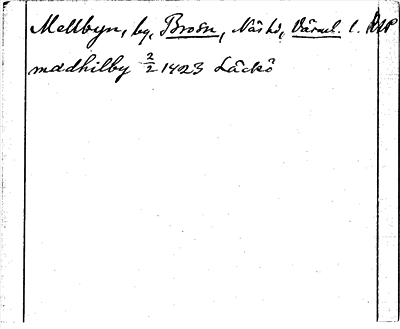 Mellbyn, by, Broän, Näshd, Värml. l. RAP
mædhilby 2/2 1423 Läckö